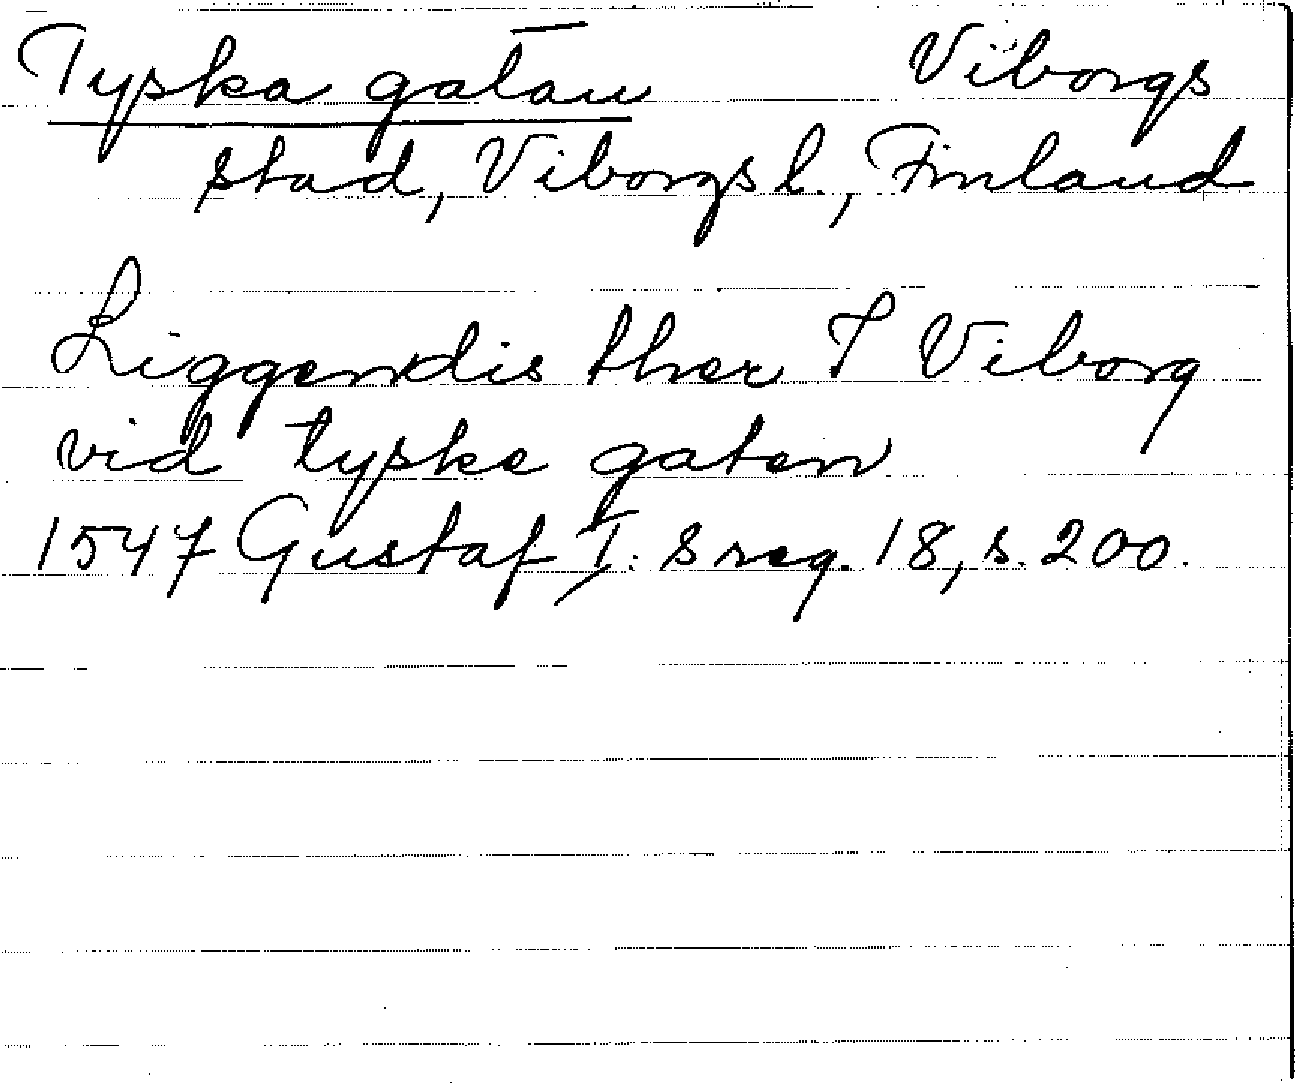 Tyska gatan Viborgs
stad, Viborgs l., Finland
Liggendis ther I Viborg
vid tyske gaten
1547 Gustaf I:s reg. 18, s. 200.